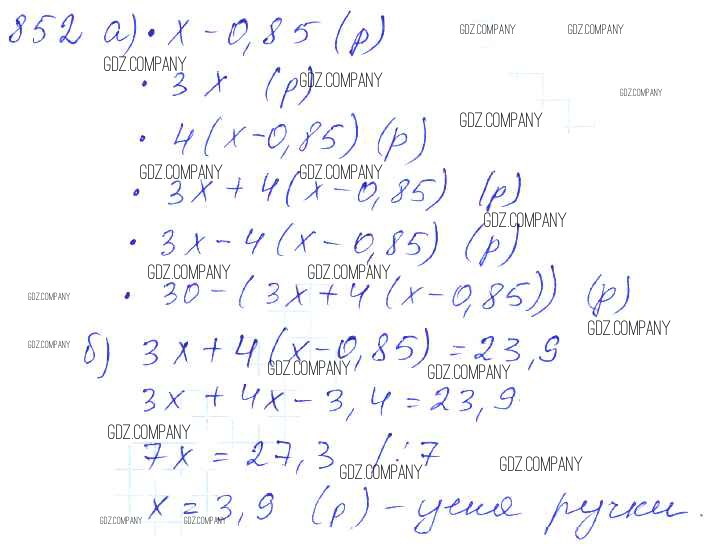 852 а) • x - 0,85 (р)
GDZ.COMPANY GDZ.COMPANY
GDZ.COMPANY
• 3x (р)
GDZ.COMPANY GDZ.COMPANY
GDZ.COMPANY
• 4(x-0,85) (р)
GDZ.COMPANY
GDZ.COMPANY GDZ.COMPANY
• 3x + 4(x - 0,85) (р)
GDZ.COMPANY
• 3x - 4(x - 0,85) (р)
GDZ.COMPANY GDZ.COMPANY
• 30 - (3x + 4(x - 0,85)) (р)
GDZ.COMPANY
GDZ.COMPANY
б) 3x + 4(x - 0,85) = 23,9
GDZ.COMPANY
GDZ.COMPANY GDZ.COMPANY
3x + 4x - 3,4 = 23,9
GDZ.COMPANY
7x = 27,3 /:7
GDZ.COMPANY GDZ.COMPANY
x = 3,9 (р) - цена ручки.
GDZ.COMPANY GDZ.COMPANY